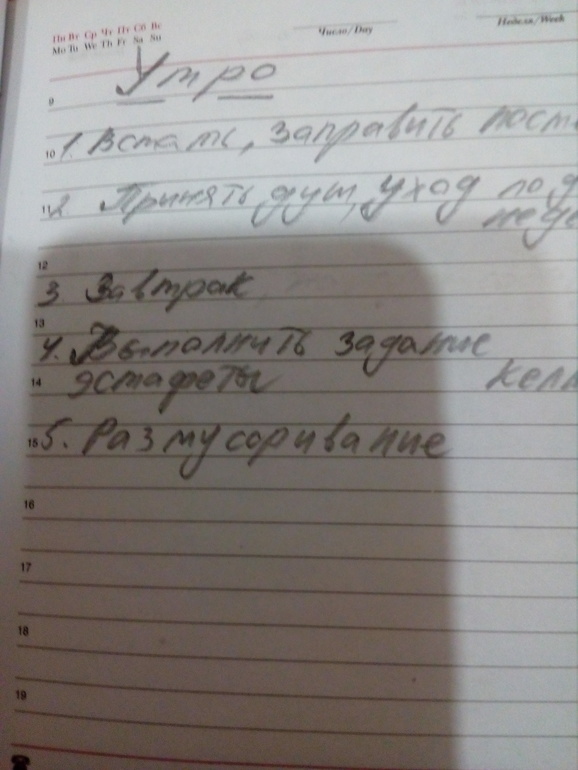 Пн Вт Ср Чт Пт Сб Вс
Mo Tu We Th Fr Sa Su
Число/Day
Неделя/Week
Утро
9
10 1. Встать, заправить
11 2. Принять душ, уход
12
3 Завтрак
13
4. Выполнить задание
14 эстафеты
15 5. Размусоривание
16
17
18
19